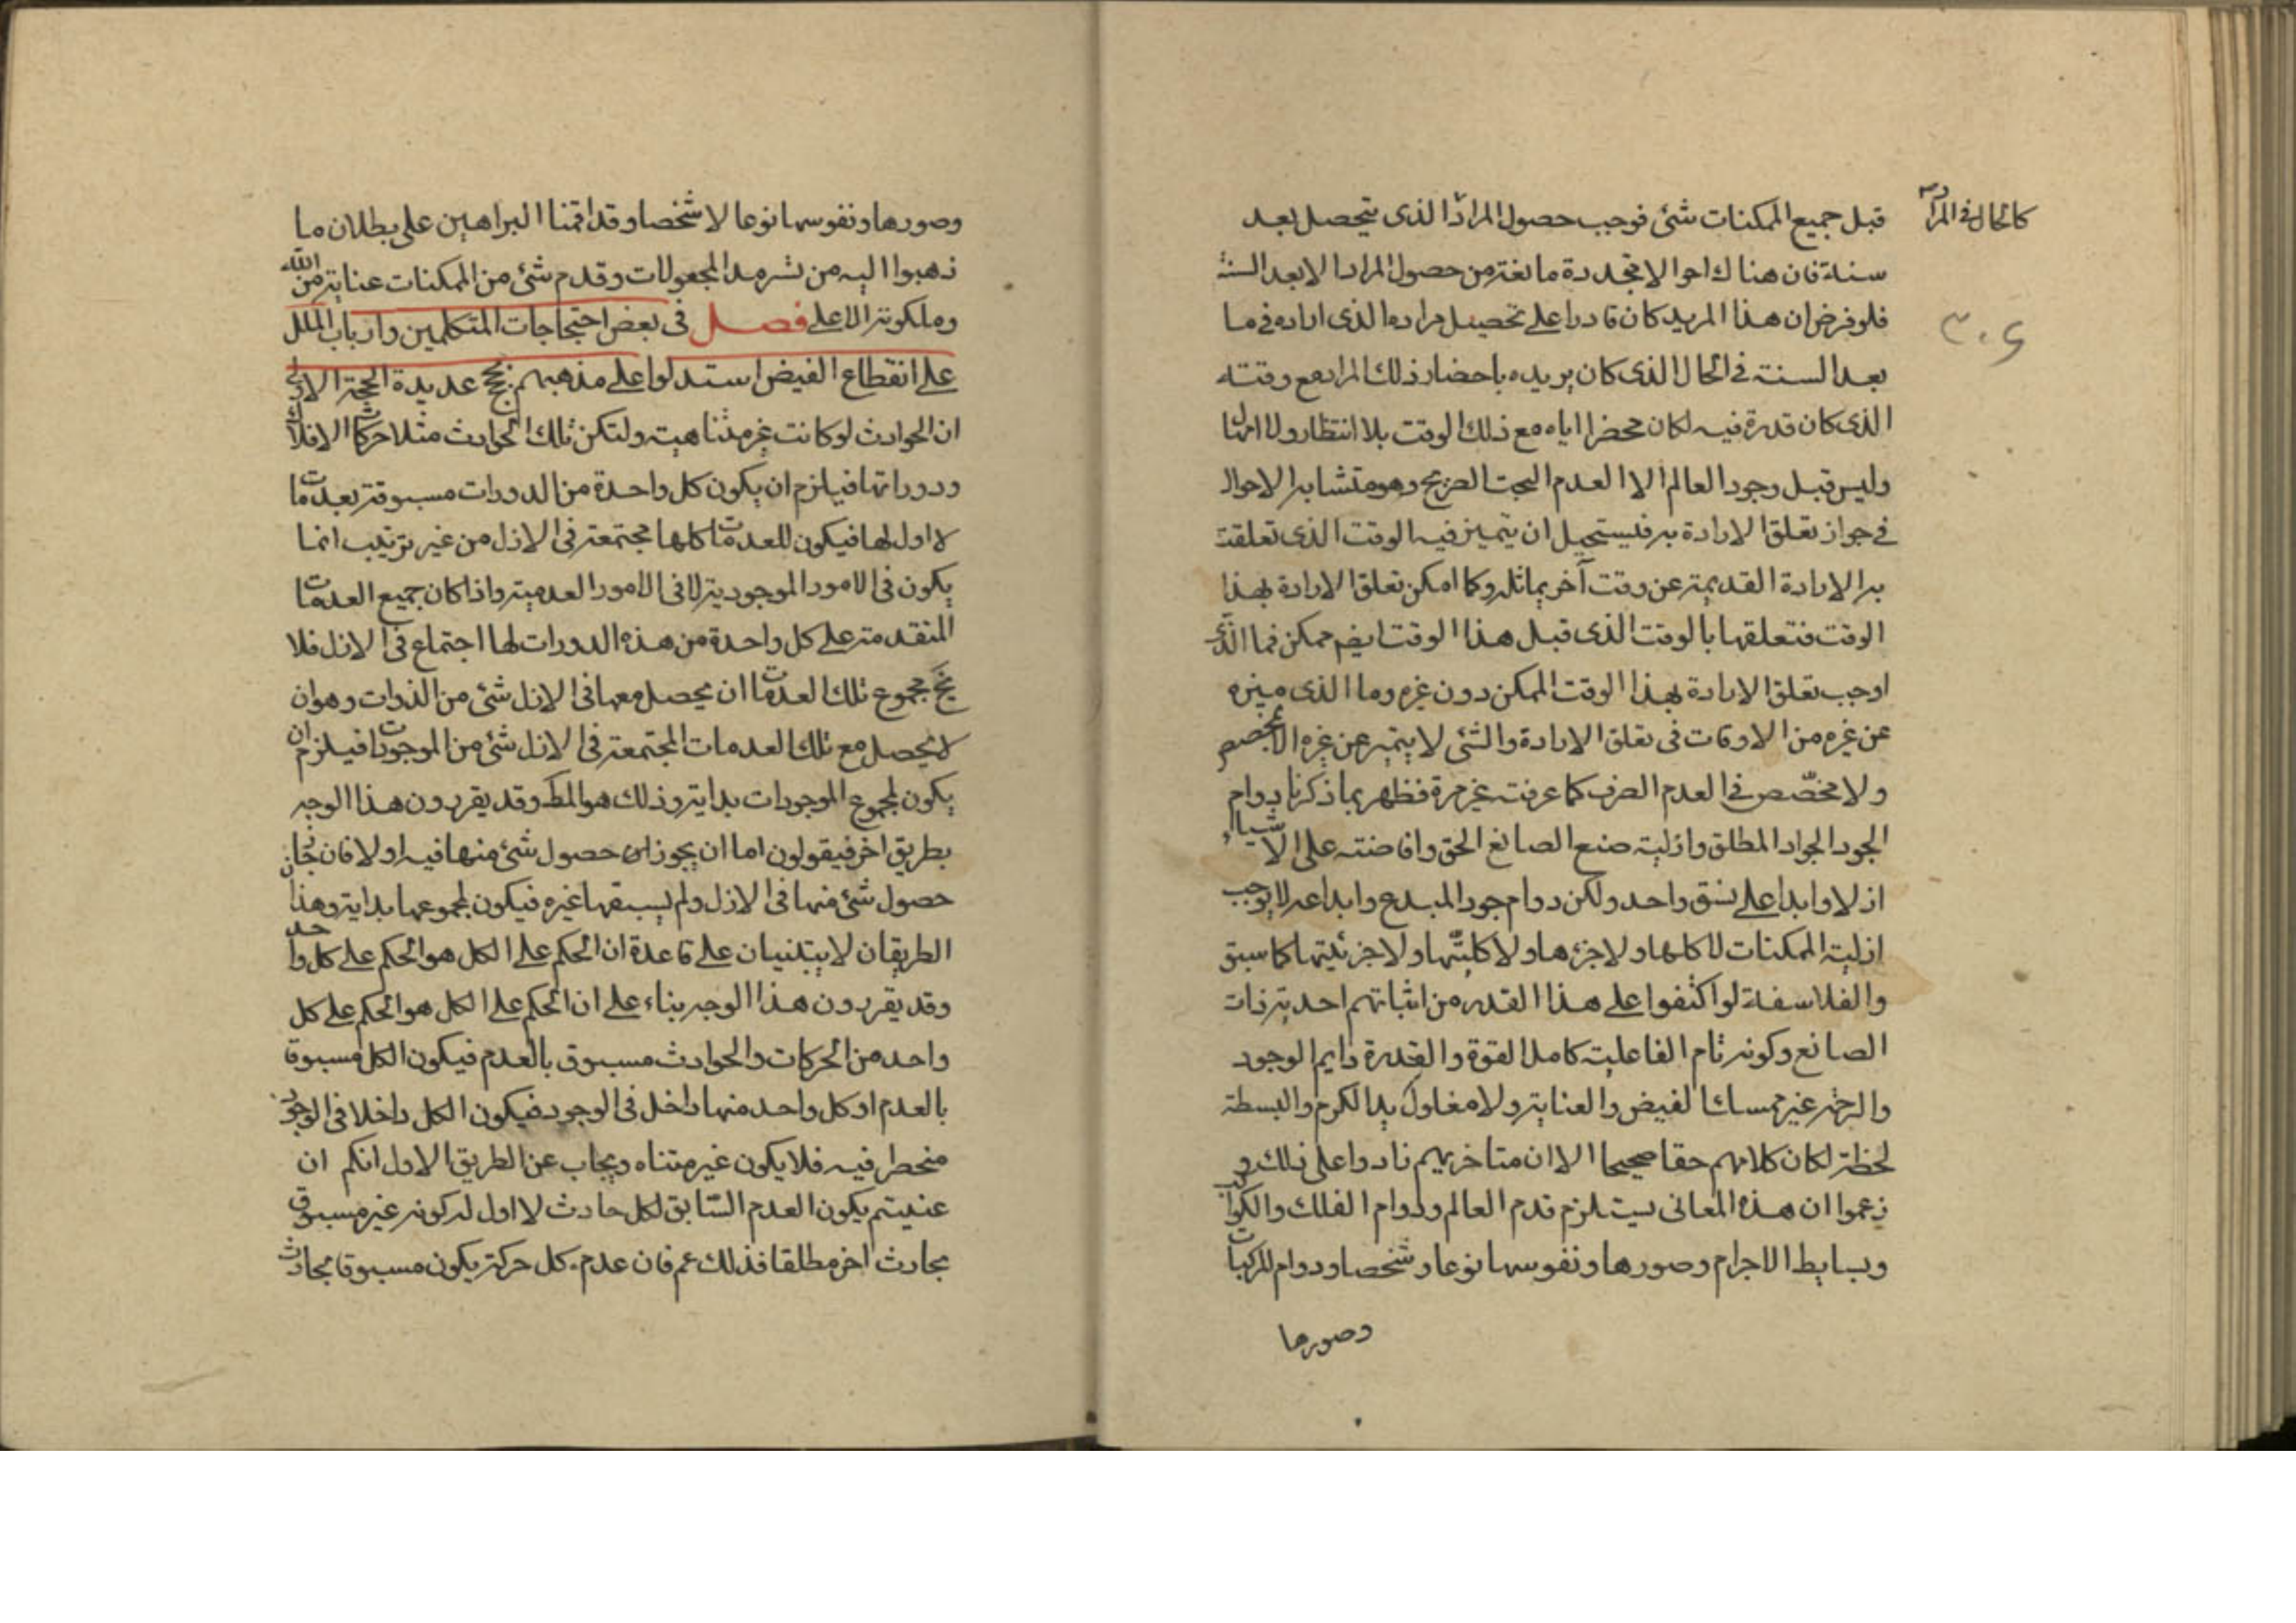 قبل جميع الممكنات شئ فوجب حصول المراد الذى يتحصل بعد
كالحال فى المراد
سنة فان هناك احوالا متجددة مانعة من حصول المراد الا بعد السنة
فلو فرض ان هذا المريد كان قادرا على تحصيل مراده الذى اراده فى ما
٣٠۶
بعد السنة فى الحال الذى كان يريده باحضار ذلك المراد مع وقته
الذى كان قدره فيه لكان محضرا اياه مع ذلك الوقت بلا انتظار ولا امهال
وليس قبل وجود العالم الا العدم البحت الصريح وهو متشابه الاحوال
فى جواز تعلق الارادة به فيستحيل ان يتميز فيه الوقت الذى تعلقت
به الارادة القديمة عن وقت آخر يماثله وكما امكن تعلق الارادة بهذا
الوقت فتعلقها بالوقت الذى قبل هذا الوقت ايضم ممكن فما الذى
اوجب تعلق الارادة بهذا الوقت الممكن دون غيره وما الذى ميزه
عن غيره من الاوقات فى تعلق الارادة والشئ لا يتميز عن غيره الا بمخصص
ولا مخصّص فى العدم الصرف كما عرفته غير مرة فظهر بما ذكرنا دوام
الجود الجواد المطلق وازلية صنع الصانع الحق وافاضته على الاشياء
ازلا وابدا على نسق واحد ولكن دوام جود المبدع وابداعه لا يوجب
ازلية الممكنات لا كلها ولا جزءها ولا كليّتها ولا جزئيتها كما سبق
والفلاسفة لو اكتفوا على هذا القدر من اثباتهم احدية ذات
الصانع وكونه تام الفاعلية كامل القوة والقدرة دايم الوجود
والرحمة غير ممسك الفيض والعناية ولا مغلول يد الكرم والبسطة
لحظة لكان كلامهم حقا صحيحا الا ان متاخريهم زادوا على ذلك و
زعموا ان هذه المعانى يستلزم قدم العالم ودوام الفلك والكواكب
وبسايط الاجرام وصورها ونفوسها نوعا وشخصا ودوام المركبات
وصورها
وصورها ونفوسها نوعا لا شخصا وقد اقمنا البراهين على بطلان ما
ذهبوا اليه من تسرمد المجعولات وقدم شئ من الممكنات عناية من الله
وملكوته الاعلى فصل فى بعض احتجاجات المتكلمين وارباب الملل
على انقطاع الفيض استدلوا على مذهبهم بحجج عديدة الحجة الاولى
ان الحوادث لو كانت غير متناهية ولتكن تلك الحوادث مثلا حركات الافلاك
ودوراتها فيلزم ان يكون كل واحدة من الدورات مسبوقة بعدمات
لا اول لها فيكون للعدمات كلها مجتمعة فى الازل من غير ترتيب انما
يكون فى الامور الموجودية لا فى الامور العدمية واذا كان جميع العدمات
المتقدمة على كل واحدة من هذه الدورات لها اجتماع فى الازل فلا
يخ مجموع تلك العدمات ان يحصل معها فى الازل شئ من الذوات وهو ان
لا يحصل مع تلك العدمات المجتمعة فى الازل شئ من الموجودات فيلزم ان
يكون لمجموع الموجودات بداية وذلك هو المط وقد يقررون هذا الوجه
بطريق اخر فيقولون اما ان يجوز حصول شئ منها فيه اولا فان جاز
حصول شئ منها فى الازل ولم يسبقها غيره فيكون لمجموعها بداية وهذا
الطريقان لا يبتنيان على قاعدة ان الحكم على الكل هو الحكم على كل واحد
وقد يقررون هذا الوجه بناء على ان الحكم على الكل هو الحكم على كل
واحد من الحركات والحوادث مسبوق بالعدم فيكون الكل مسبوقا
بالعدم او كل واحد منها داخل فى الوجود فيكون الكل داخلا فى الوجود
منحصر فيه فلا يكون غير متناه ويجاب عن الطريق الاول انكم ان
عنيتم بكون العدم السّابق لكل حادث لا اول له كونه غير مسبوق
بحادث اخر مطلقا فذلك عم فان عدم كل حركة يكون مسبوقا بحادث